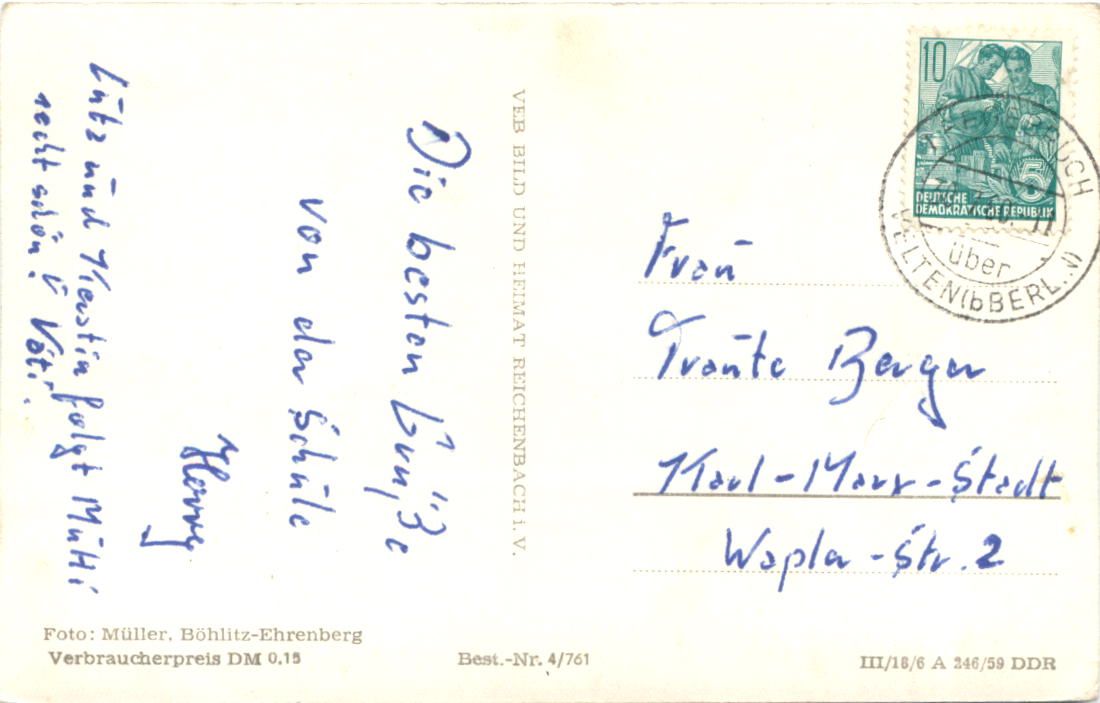 Die besten Grüße
von der Schule
Harry
Lutz und Kerstin folgt Mutti
recht schön! Vati.
VEB BILD UND HEIMAT REICHENBACH i. V.
10
DEUTSCHE
DEMOKRATISCHE REPUBLIK
5
über
VELTEN (bBERLIN)
Frau
Traute Berger
Karl-Marx-Stadt
Wapler-Str. 2
Foto: Müller, Böhlitz-Ehrenberg
Verbraucherpreis DM 0,15
Best.-Nr. 4/761
III/18/6 A 246/59 DDR